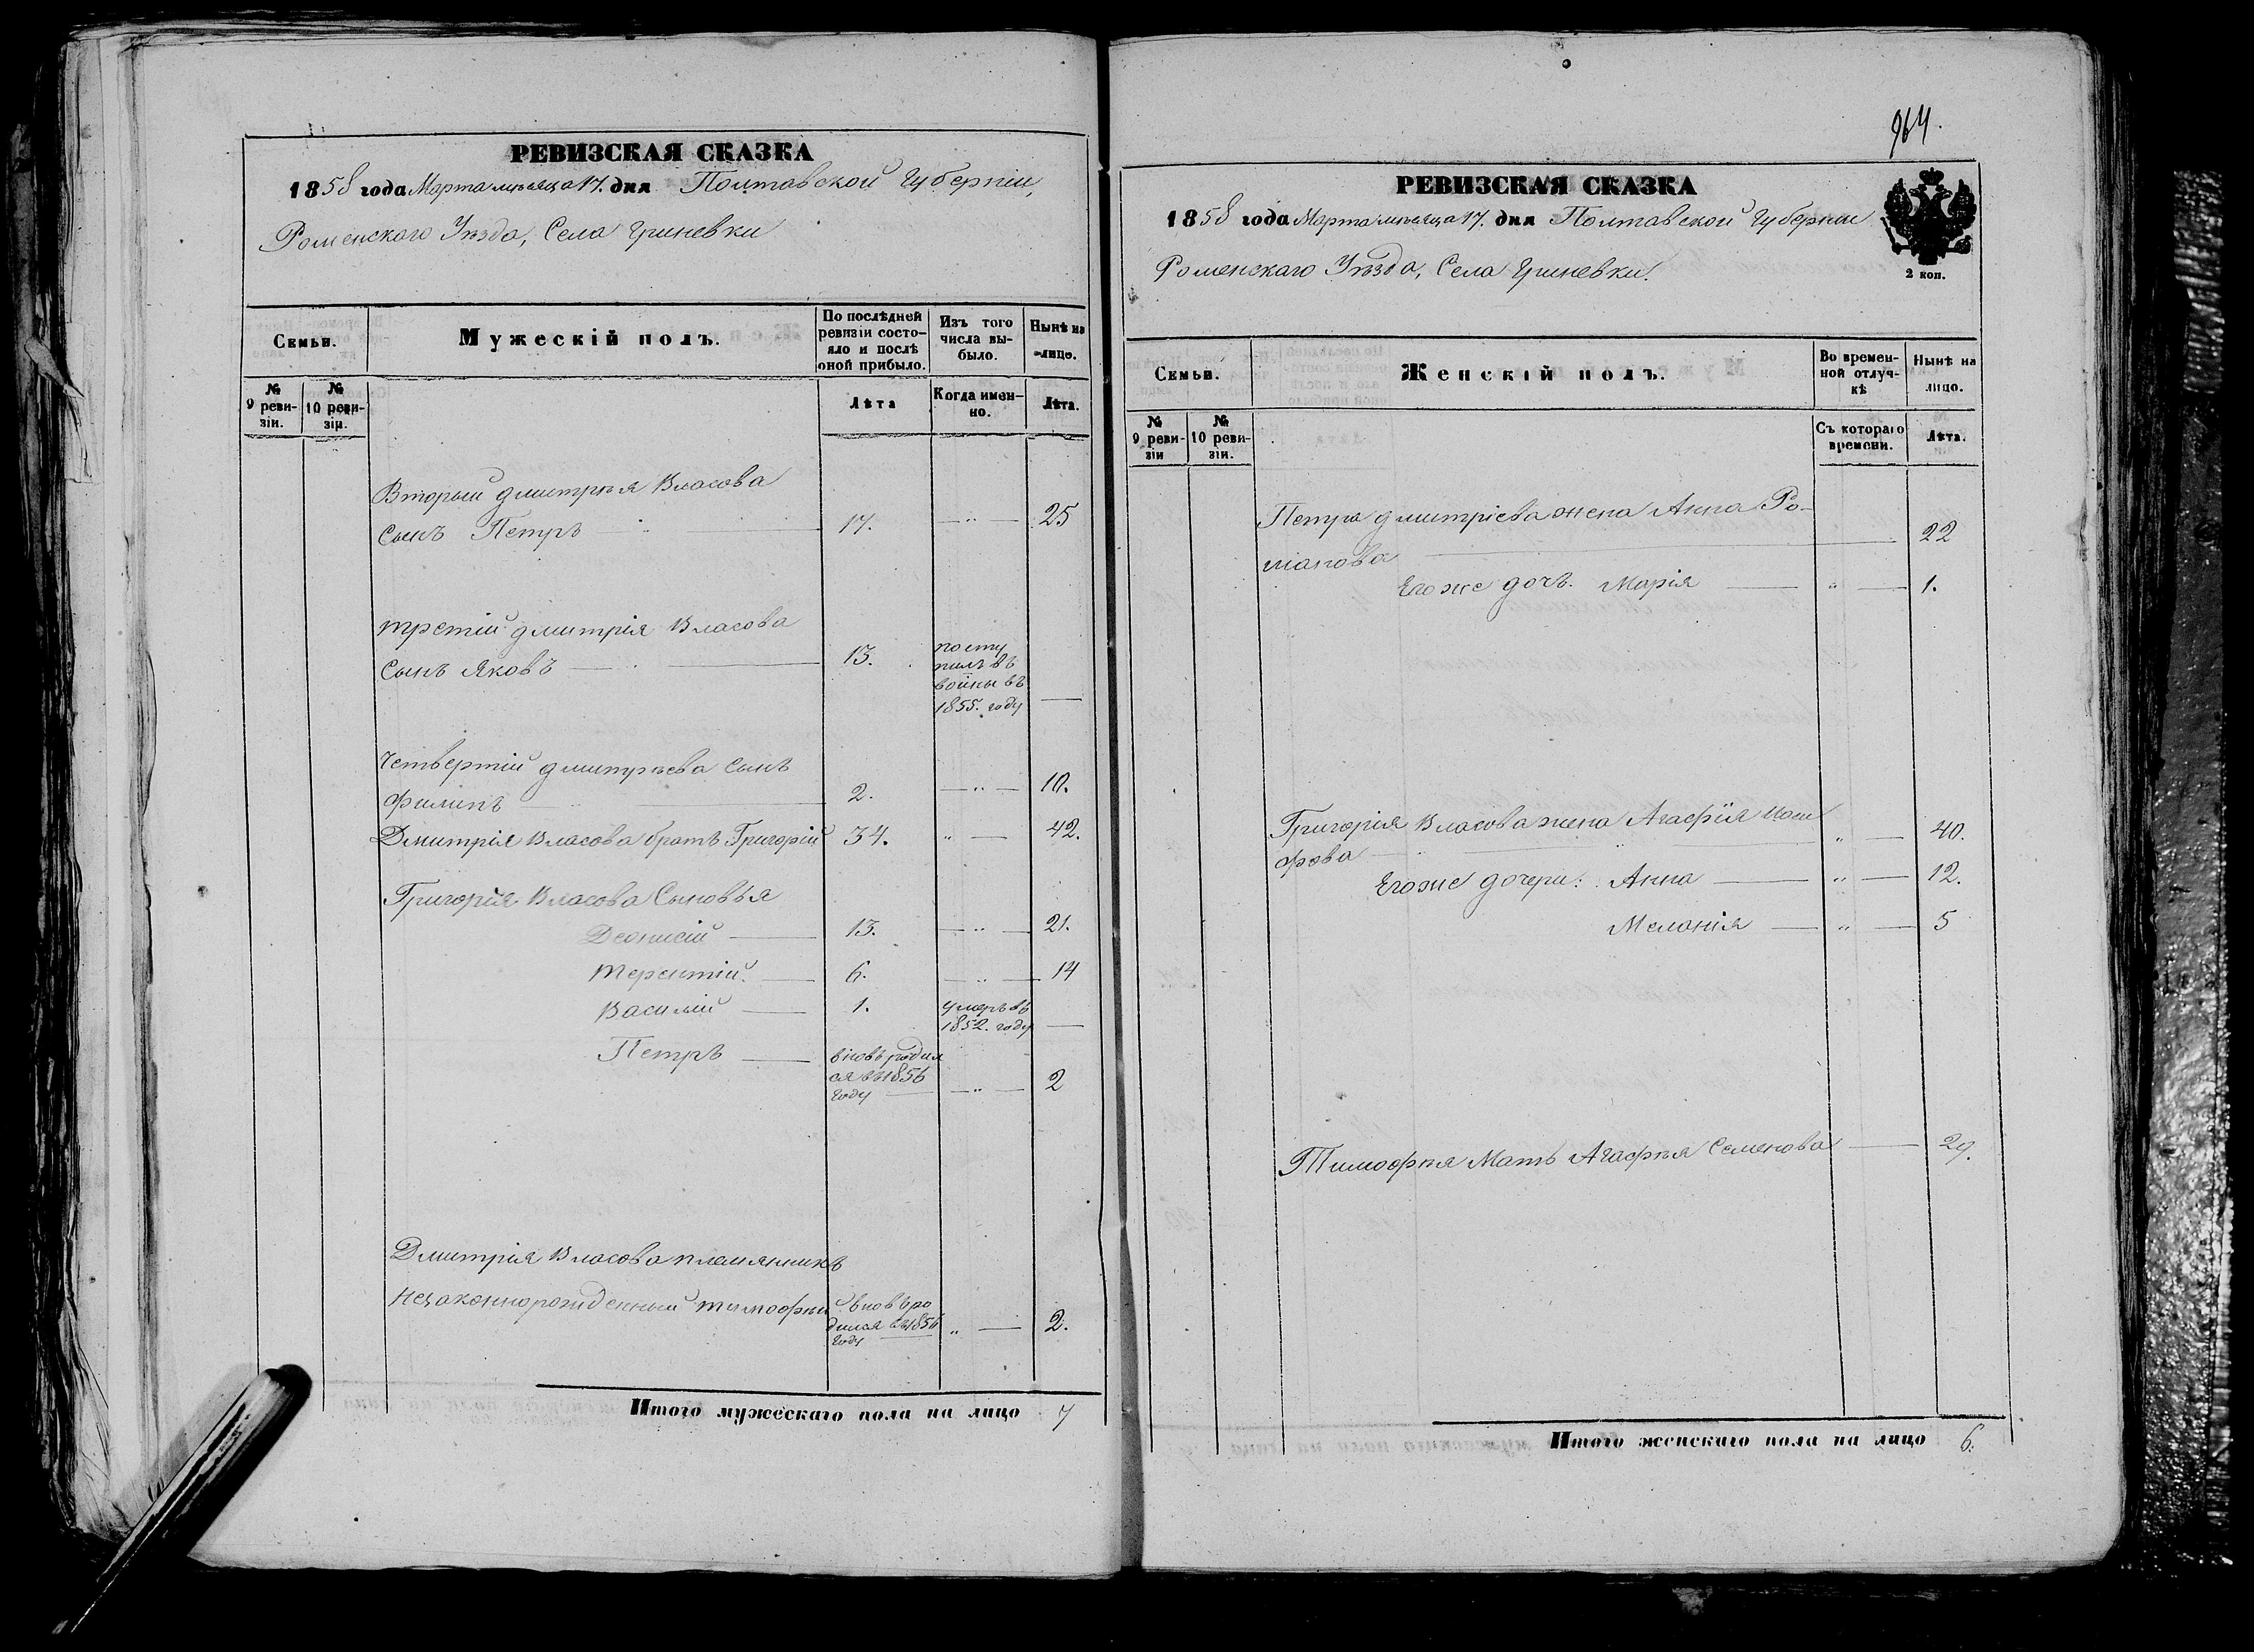 РЕВИЗСКАЯ СКАЗКА
1858 года Марта месяца 17. дня Полтавской Губерніи,
Роменскаго Уѣзда, Села Гриневки
Семьи.
Мужескій полъ.
По послѣдней ревизіи состояло и послѣ оной прибыло.
Изъ того числа выбыло.
Нынѣ на лице.
№ 9 ревизіи.
№ 10 ревизіи.
Лѣта
Когда именно.
Лѣта.
Вторый Дмитрія Власова
сынъ Петръ 17. — " — 25
третій Дмитрія Власова
сынъ Яковъ 13. посту
пилъ въ
войны въ
1855. году —
Четвертій Дмитріева сынъ
Филипъ 2. — " — 10.
Дмитрія Власова братъ Григорій 34. " — 42.
Григорія Власова Сыновья
Деонисій — 13. — " — 21.
Терентій. — 6. — " — 14
Василій — 1. умеръ въ
1852. году —
Петръ — вновь родил
ся въ 1856
году — — " — 2
Дмитрія Власова племянникъ
незаконнорожденный Тимофѣй вновь ро
дился въ 1856
году — " — 2.
Итого мужескаго пола на лицо 7
964.
РЕВИЗСКАЯ СКАЗКА
1858 года Марта месяца 17. дня Полтавской Губерніи
Роменскаго Уѣзда, Села Гриневки.
2 коп.
Семьи.
Женскій полъ.
Во временной отлучкѣ
Нынѣ на лицо.
№ 9 ревизіи
№ 10 ревизіи.
Съ котораго времени.
Лѣта.
Петра Дмитріева жена Анна Ро-
манова 22
Егоже дочь. Марія — " — 1.
Григорія Власова жена Агафія
фова " — 40.
Егоже дочери: Анна — " — 12.
Меланія — " — 5
Тимофѣя Мать Агафья Семенова — 29.
Итого женскаго пола на лицо 6.